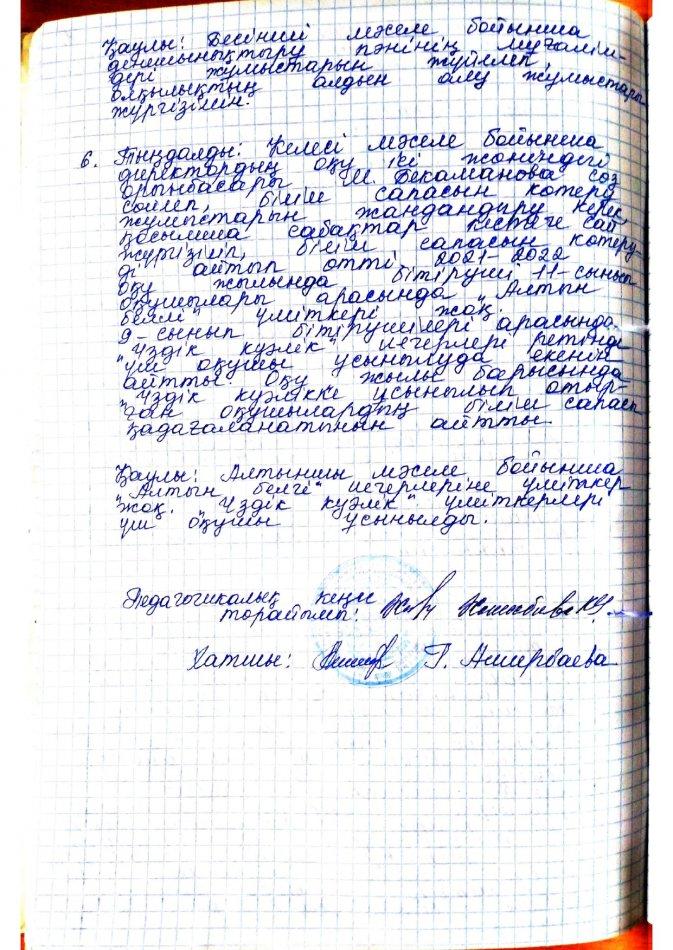 Қаулы: Бесінші мәселе бойынша
денешынықтыру пәнінің мұғалім-
дері жұмыстарын жүйелеп,
олқылықтың алдын алу жұмыстары
жүргізілсін.
6. Тыңдалды: Келесі мәселе бойынша
директордың оқу ісі жөніндегі
орынбасары Ш. Бекаманова сөз
сөйлеп, білім сапасын көтеру
жұмыстарын жандандыру керек,
қосымша сабақтар кестеге сай
жүргізіліп, білім сапасын көтеру-
ді айтып өтті. 2021-2022
оқу жылында бітіруші 11-сынып
оқушылары арасында „Алтын
белгі" үміткері жоқ.
9-сынып бітірушілері арасында
„Үздік куәлік" иегерлері ретінде
үш оқушы ұсынылуда екенін
айтты. Оқу жылы барысында
„Үздік куәлікке ұсынылып отыр-
ған оқушылардың білім сапасы
қадағаланатынын айтты.
Қаулы: Алтыншы мәселе бойынша
„Алтын белгі" иегерлеріне үміткер
жоқ. „Үздік куәлік" үміткерлері
үш оқушы ұсынылды.
Педагогикалық кеңес
төрайымы:
Хатшы: Г. Аширбаева